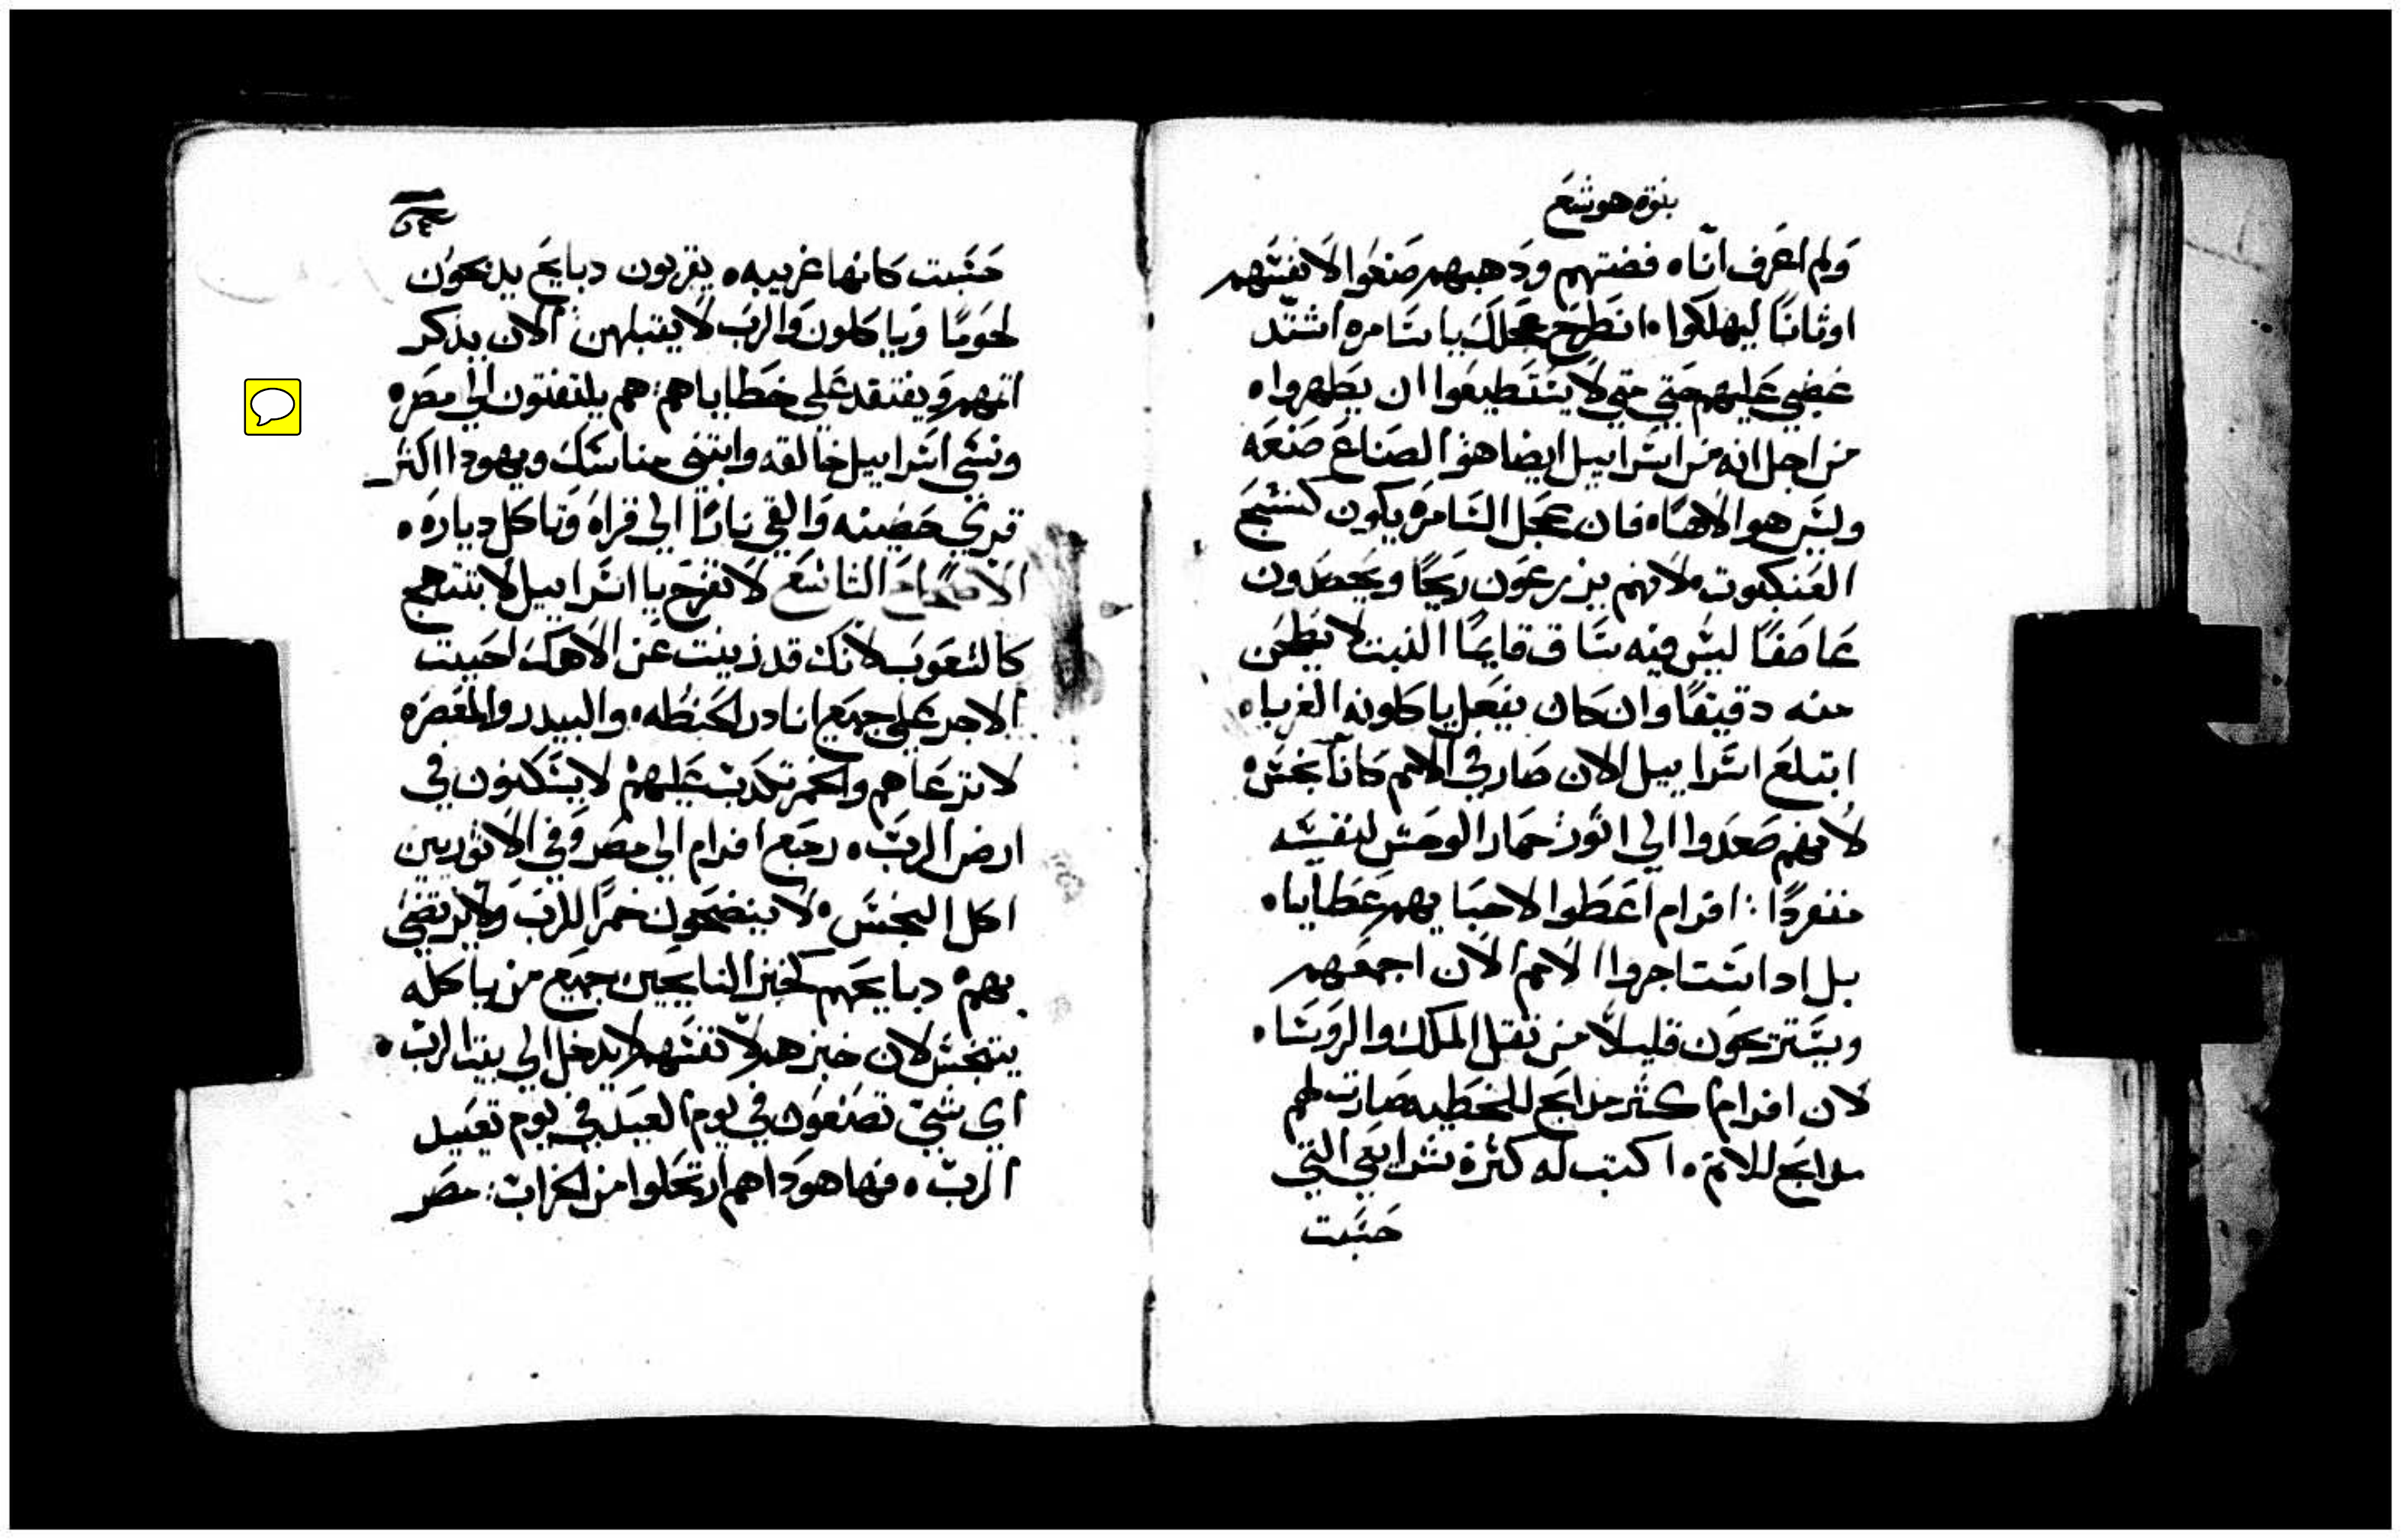 نبوة هوشع
ولم اعرف انا ٥ فضتهم ودهبهم صنعوا لانفسهم
اوثانًا ليهلكوا ٥ انطرح عجلك يا سامره اشتد
غضبي عليهم حتي متي لا يستطيعوا ان يطهروا ٥
من اجل انه من اسراييل ايضا هو الصناع صنعه
وليس هو الاهًا ٥ فان عجل السامره يكون كنسيج
العنكبوت ٥ لانهم يزرعون ريحًا ويحصدون
عاصفًا ليس فيه ساق قايمًا النبت لا يطحن
منه دقيقًا وان كان يفعل ياكلونه الغربا ٥
ابتلع اسراييل الان صار في الامم كاناء نجس ٥
لانهم صعدوا الي اثور حمار الوحش لنفسه
منفردًا : افرام اعطوا لاحبايهم عطايا ٥
بل ادا استاجروا الامم الان اجمعهم
ويستريحون قليلًا من ثقل الملك والروسا ٥
لان افرام كثر مدابح للخطيه صارت لهم
مدابح للاثم ٥ اكتب له كثرة شرايعي التي
حسبت
حسبت كانها غريبه ٥ يقربون دبايح يدبحون
لحومًا وياكلون والرب لا يقبلهن الان يذكر
اثمهم ويفتقد علي خطاياهم : هم يلتفتون الي مصر ٥
ونسي اسراييل خالقه وابتني مناسك ويهودا اكثر
قري حصينه والقي نارًا الي قراه وتاكل دياره ٥
الاصحاح التاسع لا تفرح يا اسراييل لا تبتهج
كالشعوب لانك قد زنيت عن الاهك احببت
الاجر علي جميع انادر الحنطه ٥ والبيدر والمعصره
لا ترعاهم والخمر تكدب عليهم لا يسكنون في
ارض الرب ٥ رجع افرام الي مصر وفي الاثوريين
اكل النجس ٥ لا ينضحون خمرًا للرب ولا يرتضي
بهم ٥ دبايحهم كخبز النايحين جميع من ياكله
يتنجس لان خبزهم لانفسهم لا يدخل الي بيت الرب ٥
اي شي تصنعون في يوم العيد في يوم تعييد
الرب ٥ فها هودا هم ارتحلوا من الخراب : مصر